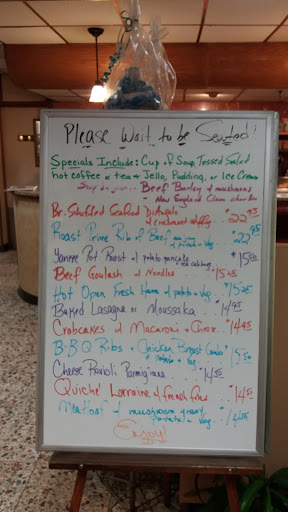 Please Wait to be Seated!
Specials Include: Cup of Soup, Tossed Salad
hot coffee or tea & Jello, Pudding, or Ice Cream
Beef Barley & mushrooms
- New England Clam chowder
Br. Stuffed Seafood
crabmeat stuffing $22.95
Roast Prime Rib of Beef
potato & Veg $22.95
Yankee Pot Roast & potato pancake
red cabbage $15.50
Beef Goulash & Noodles $15.25
Hot Open Fresh Ham & potato & Veg $15.25
Baked Lasagna or Moussaka $14.95
Crabcakes & Macaroni & Cheese $14.95
B.B.Q Ribs & Chicken Breast Combo
& potato & Veg $15.50
Cheese Ravioli Parmigiana $14.50
Quiche Lorraine & french fries $14.50
Meatloaf & mushroom gravy
potato & Veg
Enjoy!